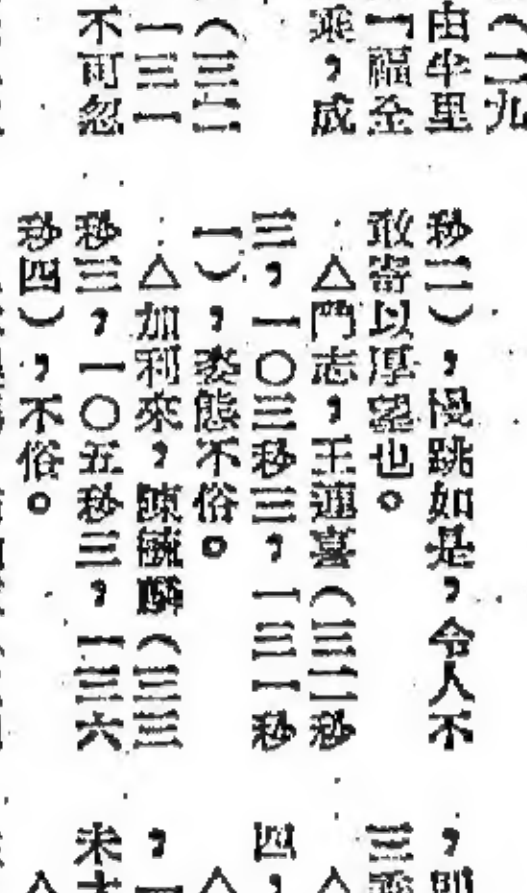 （二九
由半里
一福金
乘，成
（三二
一三一
不可忽
秒二），慢跳如是，令人不
敢寄以厚望也。
△鬥志，王連喜（三二秒
三，一〇三秒三，一三一秒
一），姿態不俗。
△加利來，陳毓麟（三三
秒三，一〇五秒三，一三六
秒四），不俗。
，別
三
四，
△
，一
未